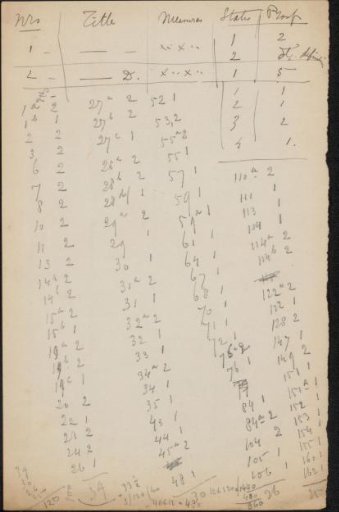 Nrs Title Measures States Proof
1 - — - ×..× .. 1 2
2
2 - — D. ×..×.. 1 5
1 1
2 1
3 2
4 1.
1a - 2
1b 1
2 2
3 2
6 2
7 2
8 2
10 2
11 2
13 2
14b 2
14 1
15a 2
15b 2
19a 2
19b 2
19c 1
20 2
22 2
23 2
24 2
26 1
27a 2
27b 2
27c 1
28a 2
28b 2
28 1
29a 2
29 1
30 1
31a 2
31 1
32a 2
32 1
33 1
34a 2
34 1
35 1
43 1
44 1
45a 2
48 1
52 1
53, 2
55a 2
55 1
57 1
59 1
59a 1
61 1
64 1
67 1
68 1
70 1
71 1
72 1
75a 2
76 1
79
84 1
84a 2
104 2
105 1
106 1
110a 2
111 1
113 1
114 1
114a 2
114b 2
122a 2
122 1
128 2
147 1
149 2
151 1
151a 1
152 1
153 1
154 1
155 1
160 1
162 1
39
30
26